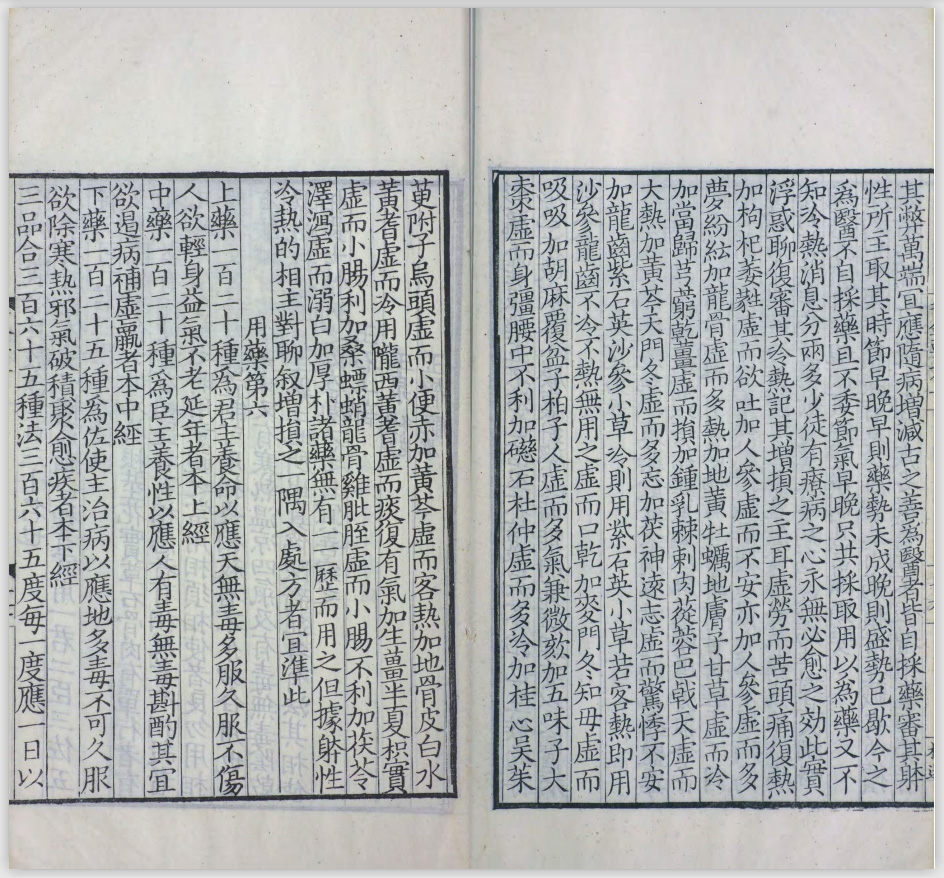 其弊萬端宜應隨病增減古之善為醫者皆自採藥審其躰
性所主取其時節早晚早則藥勢未成晚則盛勢已歇今之
為醫不自採藥且不委節氣早晚只共採取用以為藥又不
知冷熱消息分兩多少徒有療病之心永無必愈之効此實
浮惑聊復審其冷熱記其增損之主耳虛勞而苦頭痛復熱
加枸杞萎蕤虛而欲吐加人參虛而不安亦加人參虛而多
夢紛紜加龍骨虛而多熱加地黃牡蠣地膚子甘草虛而冷
加當歸芎藭乾薑虛而損加鍾乳棘刺肉蓯蓉巴戟天虛而
大熱加黃芩天門冬虛而多忘加茯神遠志虛而驚悸不安
加龍齒紫石英沙參小草冷則用紫石英小草若客熱即用
沙參龍齒不冷不熱無用之虛而口乾加麥門冬知毋虛而
吸吸加胡麻覆盆子柏子人虛而多氣兼微欬加五味子大
棗虛而身彊腰中不利加磁石杜仲虛而多冷加桂心吴茱
萸附子烏頭虛而小便赤加黃芩虛而客熱加地骨皮白水
黃耆虛而冷用隴西黃耆虛而痰復有氣加生薑半夏枳實
虛而小腸利加桑螵蛸龍骨雞肶胵虛而小腸不利加茯苓
澤瀉虛而溺白加厚朴諸藥無有一一歷而用之但據躰性
冷熱的相主對聊叙增損之一隅入處方者宜準此
用藥第六
上藥一百二十種為君主養命以應天無毒多服久服不傷
人欲輕身益氣不老延年者本上經
中藥一百二十種為臣主養性以應人有毒無毒斟酌其宜
欲遏病補虛羸者本中經
下藥一百二十五種為佐使主治病以應地多毒不可久服
欲除寒熱邪氣破積聚愈疾者本下經
三品合三百六十五種法三百六十五度每一度應一日以